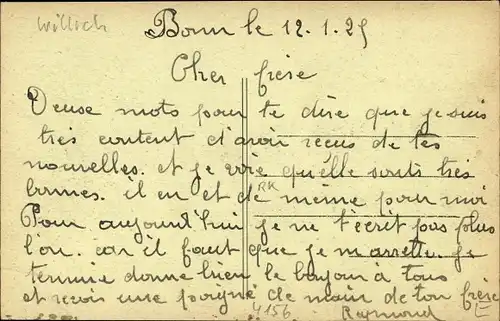 Willich
Bonn le 12.1.25
Cher frère
Deuse mots pour te dire que je suis
très content d'avoir recus de tes
nouvelles. et je voie qu'elle sonts très
bonnes. il en et de même pour moi
RK
Pour aujourd'hui je ne t'ecrit pas plus
lon. car il faut que je m'arrette. je
termine donne bien le bonjour à tous
et recois une poigné de main de ton frère
4156
Raymond